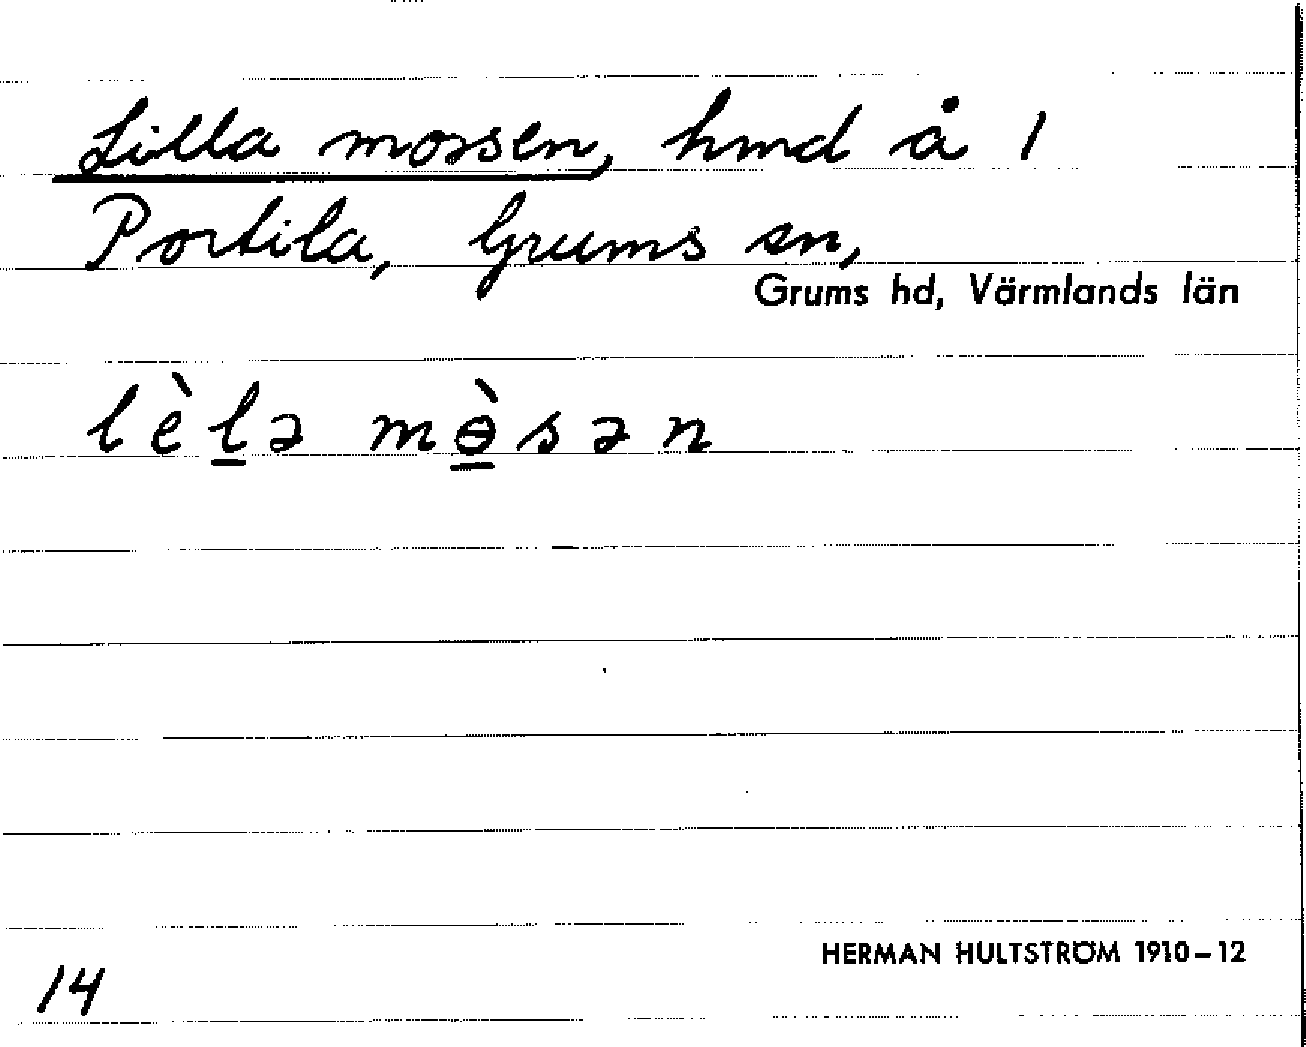 Lilla mossen, hmd å 1
Portila, Grums sn,
Grums hd, Värmlands län
lèl̲ə mɵ̲̀sən
HERMAN HULTSTRÖM 1910–12
14